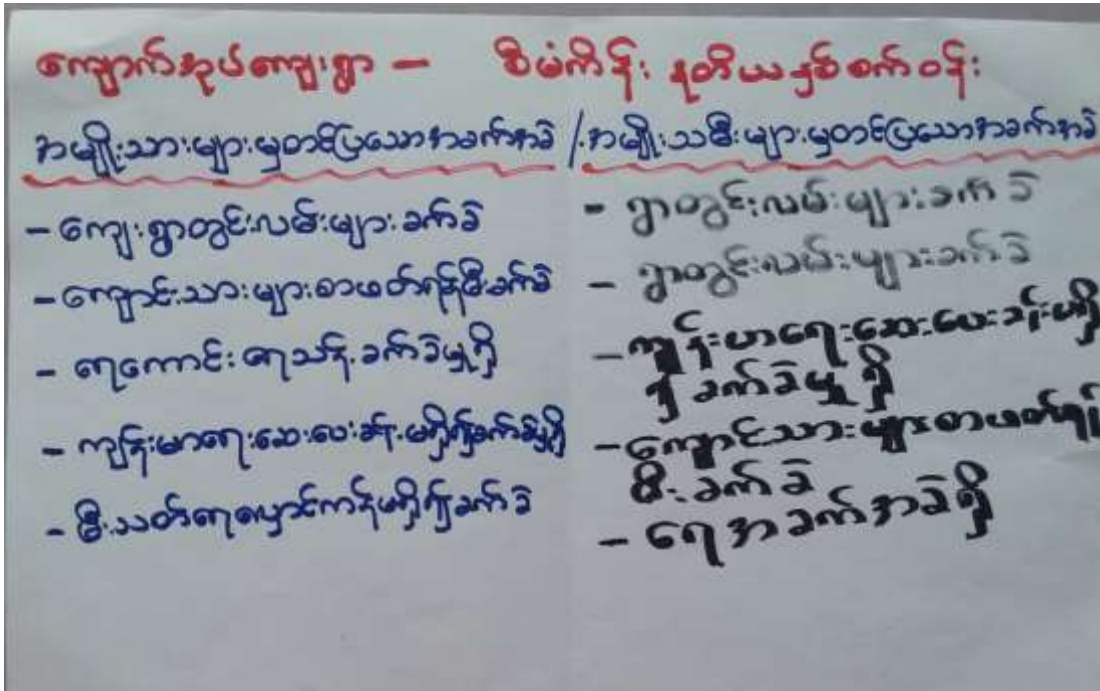 ကျောက်အုပ်ကျေးရွာ – စီမံကိန်း ဒုတိယနှစ်စက်ဝန်း
အမျိုးသားများမှတင်ပြသောအခက်အခဲ / အမျိုးသမီးများမှတင်ပြသောအခက်အခဲ
- ကျေးရွာတွင်းလမ်းများခက်ခဲ
- ကျောင်းသားများစာဖတ်ရန်မီးခက်ခဲ
- ရေကောင်းရေသန့်ခက်ခဲမှုရှိ
- ကျန်းမာရေးဆေးပေးခန်းမရှိ၍ခက်ခဲမှုရှိ
- မီးသတ်ရေလှောင်ကန်မရှိ၍ခက်ခဲ
- ရွာတွင်းလမ်းများခက်ခဲ
- ရွာတွင်းလမ်းများခက်ခဲ
- ကျန်းမာရေးဆေးပေးခန်းမရှိ
၍ခက်ခဲမှုရှိ
- ကျောင်သားများစာဖတ်ရန်
မီးခက်ခဲ
- ရေအခက်အခဲရှိ